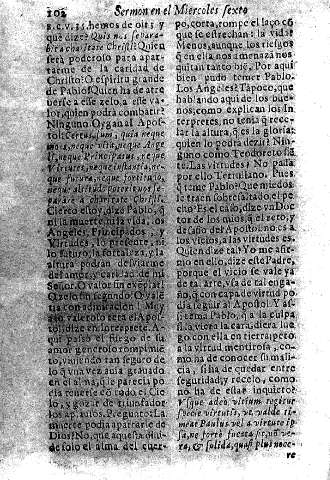 102 Sermon en el Miercoles sexto
8.c.v.35. hemos de oir; y
que dize? Quis nos separa-
bit a charitate Christi? Quien
será poderoso para apar-
tarme de la caridad de
Christo? O espiritu grande
de Pablo! Quien ha de atre
verse a esse zelo, a esse va-
lor, quien podra combatir?
Ninguno. Oygan al Apos-
tol: Certus sum, quia neque
mors, neque vita, neque Ange
li, neque Principatus, neque
Virtutes, neque instantia, ne-
que futura, neque fortitudo,
neque altitudo poterit nos se-
parare a charitate Christi.
Cierto estoy, dize Pablo, q̃
ni la muerte, ni la vida, los
Angeles, Principados, y
Virtudes, lo presente, ni
lo futuro, la fortaleza, y la
altura podran desviarme
del amor, y caridad de mi
Señor. O valor sin exemplar!
O zelo sin segundo! O valẽ
tia con admiracion! Muy
valeroso será el Apos-
tol, dize su Interprete. A-
qui passó el fuego de su
amor generoso rompimiẽ
to, viniendo tan seguro de
lo q̃ una vez auia granado
en el alma, q̃ le parecia po
dia tenerse cõ todo el Cie
lo, y gozar de triunfador
los aplausos. Pregunto: La
muerte podia apartarle de
Dios? No, que aquesta divi
de solo el alma del cuer-
po, corta, rompe el laço cõ
que se estrechan: la vida?
Menos, aunque los riesgos
en ella nos amenacen no
quitan tanto biẽ. Por aqui
bien pudo temer Pablo.
Los Angeles? Tãpoco, que
hablando aqui de los bue-
nos, como explican los In
terpretes, no tenia q̃ rece-
lar la altura, q̃ es la gloria:
quien lo podra dezir? Nin-
guno como Teodoreto siẽ
te. Las virtudes? No passa
por ello Tertuliano. Pues
q̃ teme Pablo? Que miedos
le traen sobresaltado el pe
cho? Es el caso, dize vn Doc
tor de los mios, q̃ el reto, y
desafio del Apostol no es a
los vicios, a las virtudes es.
Quien dize tal? Yo me afir
mo en ello, dize este Padre,
porque el vicio se vale ya
de tal arte, vsa de tal enga-
ño, q̃ con capa de virtud po
dia seguir al Apostol. Y as-
si teme Pablo, q̃ a la culpa
si la viera la cara, diera lue
go con ella en tierra; pero
a la virtud mentirosa, co-
mo ha de conocer su mali
cia, si ha de quedar entre
seguridad, y recelo, como
no ha de estar inquieto?
Vsque adeo vitium tegitur
specie virtutis, ut valde ti-
meat Paulus vel a virtute ip-
sa, ne forte fucata sit, nõ ve-
ra, & solida, quasi plus noce-
re